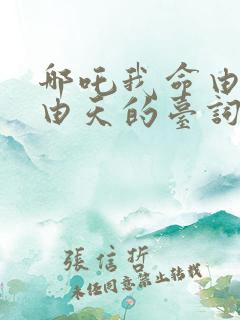 哪吒我命由
由天的臺詞
張信哲
未经同意禁止转载